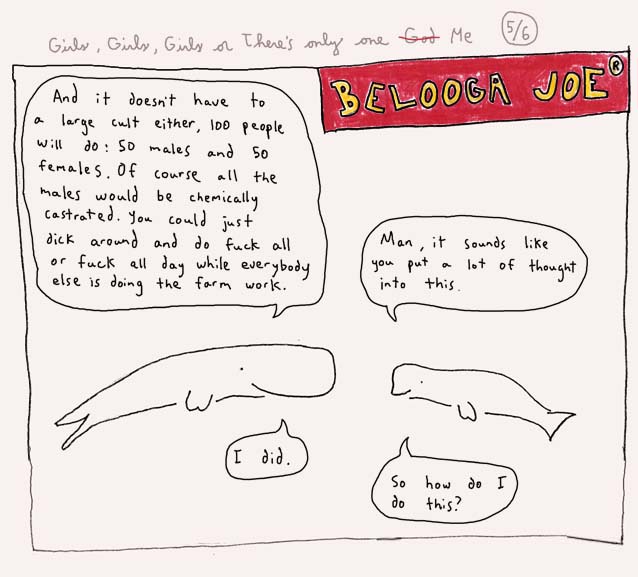 Girls, Girls, Girls or There's only one God Me
5/6
BELOOGA JOE®
And it doesn't have to
a large cult either, 100 people
will do: 50 males and 50
females. Of course all the
males would be chemically
castrated. You could just
dick around and do fuck all
or fuck all day while everybody
else is doing the farm work.
Man, it sounds like
you put a lot of thought
into this.
I did.
So how do I
do this?